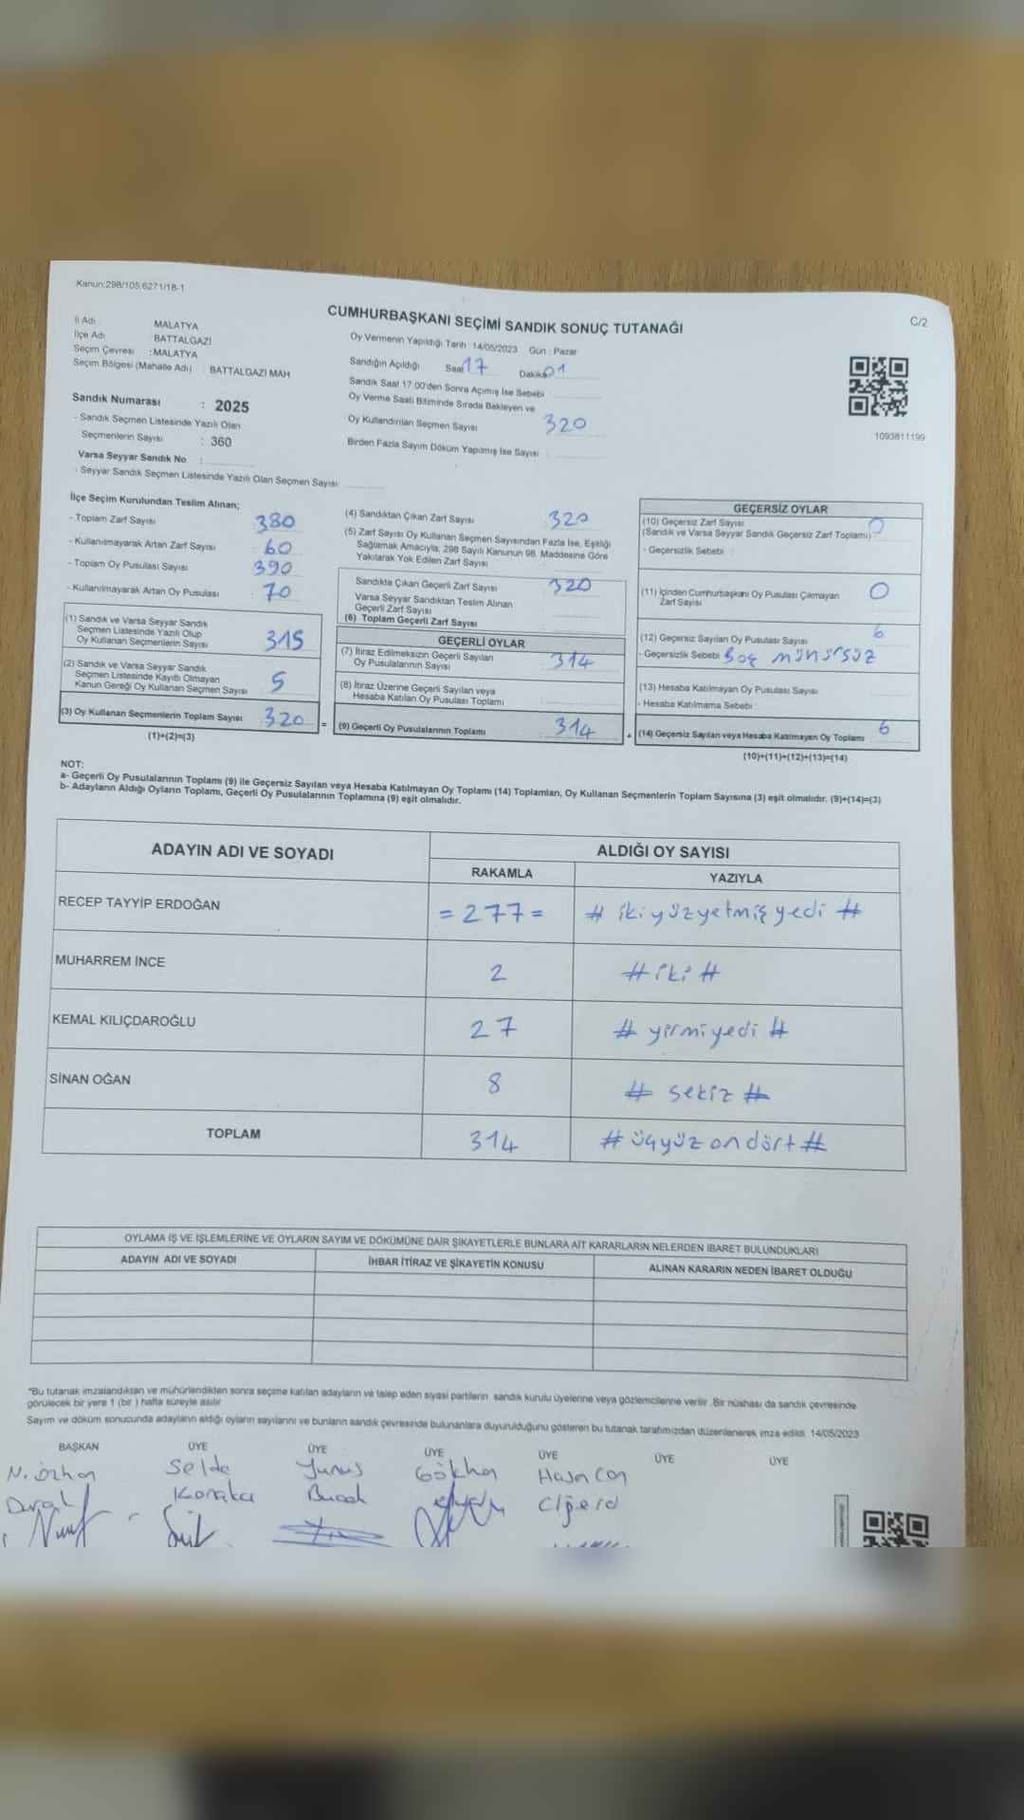 Kanun:298/105;6271/18-1
CUMHURBAŞKANI SEÇİMİ SANDIK SONUÇ TUTANAĞI
C/2
İl Adı MALATYA
İlçe Adı BATTALGAZİ
Seçim Çevresi : MALATYA
Seçim Bölgesi (Mahalle Adı) BATTALGAZİ MAH
Sandık Numarası : 2025
- Sandık Seçmen Listesinde Yazılı Olan
Seçmenlerin Sayısı : 360
Varsa Seyyar Sandık No :
- Seyyar Sandık Seçmen Listesinde Yazılı Olan Seçmen Sayısı
Oy Vermenin Yapıldığı Tarih : 14/05/2023 Gün : Pazar
Sandığın Açıldığı Saat 17 Dakika 01
Sandık Saat 17:00'den Sonra Açılmış İse Sebebi
Oy Verme Saati Bitiminde Sırada Bekleyen ve
Oy Kullandırılan Seçmen Sayısı 320
Birden Fazla Sayım Döküm Yapılmış İse Sayısı
1093811199
İlçe Seçim Kurulundan Teslim Alınan;
- Toplam Zarf Sayısı 380
- Kullanılmayarak Artan Zarf Sayısı 60
- Toplam Oy Pusulası Sayısı 390
- Kullanılmayarak Artan Oy Pusulası 70
(1) Sandık ve Varsa Seyyar Sandık
Seçmen Listesinde Yazılı Olup
Oy Kullanan Seçmenlerin Sayısı 315
(2) Sandık ve Varsa Seyyar Sandık
Seçmen Listesinde Kayıtlı Olmayan
Kanun Gereği Oy Kullanan Seçmen Sayısı 5
(3) Oy Kullanan Seçmenlerin Toplam Sayısı 320 =
(1)+(2)=(3)
(4) Sandıktan Çıkan Zarf Sayısı 320
(5) Zarf Sayısı Oy Kullanan Seçmen Sayısından Fazla İse, Eşitliği
Sağlamak Amacıyla, 298 Sayılı Kanunun 98. Maddesine Göre
Yakılarak Yok Edilen Zarf Sayısı
Sandıkta Çıkan Geçerli Zarf Sayısı 320
Varsa Seyyar Sandıktan Teslim Alınan
Geçerli Zarf Sayısı
(6) Toplam Geçerli Zarf Sayısı
GEÇERLİ OYLAR
(7) İtiraz Edilmeksizin Geçerli Sayılan
Oy Pusulalarının Sayısı 314
(8) İtiraz Üzerine Geçerli Sayılan veya
Hesaba Katılan Oy Pusulası Toplamı
(9) Geçerli Oy Pusulalarının Toplamı 314 +
GEÇERSİZ OYLAR
(10) Geçersiz Zarf Sayısı 0
(Sandık ve Varsa Seyyar Sandık Geçersiz Zarf Toplamı)
- Geçersizlik Sebebi
(11) İçinden Cumhurbaşkanı Oy Pusulası Çıkmayan 0
Zarf Sayısı
(12) Geçersiz Sayılan Oy Pusulası Sayısı 6
- Geçersizlik Sebebi Boş mühürsüz
(13) Hesaba Katılmayan Oy Pusulası Sayısı
- Hesaba Katılmama Sebebi
(14) Geçersiz Sayılan veya Hesaba Katılmayan Oy Toplamı 6
(10)+(11)+(12)+(13)=(14)
NOT:
a- Geçerli Oy Pusulalarının Toplamı (9) ile Geçersiz Sayılan veya Hesaba Katılmayan Oy Toplamı (14) Toplamları, Oy Kullanan Seçmenlerin Toplam Sayısına (3) eşit olmalıdır. (9)+(14)=(3)
b- Adayların Aldığı Oyların Toplamı, Geçerli Oy Pusulalarının Toplamına (9) eşit olmalıdır.
ADAYIN ADI VE SOYADI ALDIĞI OY SAYISI
RAKAMLA YAZIYLA
RECEP TAYYİP ERDOĞAN = 277 = # ikiyüzyetmişyedi #
MUHARREM İNCE 2 # iki #
KEMAL KILIÇDAROĞLU 27 # yirmiyedi #
SİNAN OĞAN 8 # sekiz #
TOPLAM 314 # üçyüz on dört #
OYLAMA İŞ VE İŞLEMLERİNE VE OYLARIN SAYIM VE DÖKÜMÜNE DAİR ŞİKAYETLERLE BUNLARA AİT KARARLARIN NELERDEN İBARET BULUNDUKLARI
ADAYIN ADI VE SOYADI İHBAR İTİRAZ VE ŞİKAYETİN KONUSU ALINAN KARARIN NEDEN İBARET OLDUĞU
"Bu tutanak imzalandıktan ve mühürlendikten sonra seçime katılan adayların ve talep eden siyasi partilerin sandık kurulu üyelerine veya gözlemcilerine verilir. Bir nüshası da sandık çevresinde
görülecek bir yere 1 (bir) hafta süreyle asılır
Sayım ve döküm sonucunda adayların aldığı oyların sayılarını ve bunların sandık çevresinde bulunanlara duyurulduğunu gösteren bu tutanak tarafımızdan düzenlenerek imza edildi. 14/05/2023
BAŞKAN ÜYE ÜYE ÜYE ÜYE ÜYE ÜYE
N. Orhan Selda Yunus Gökhan Hasan Can